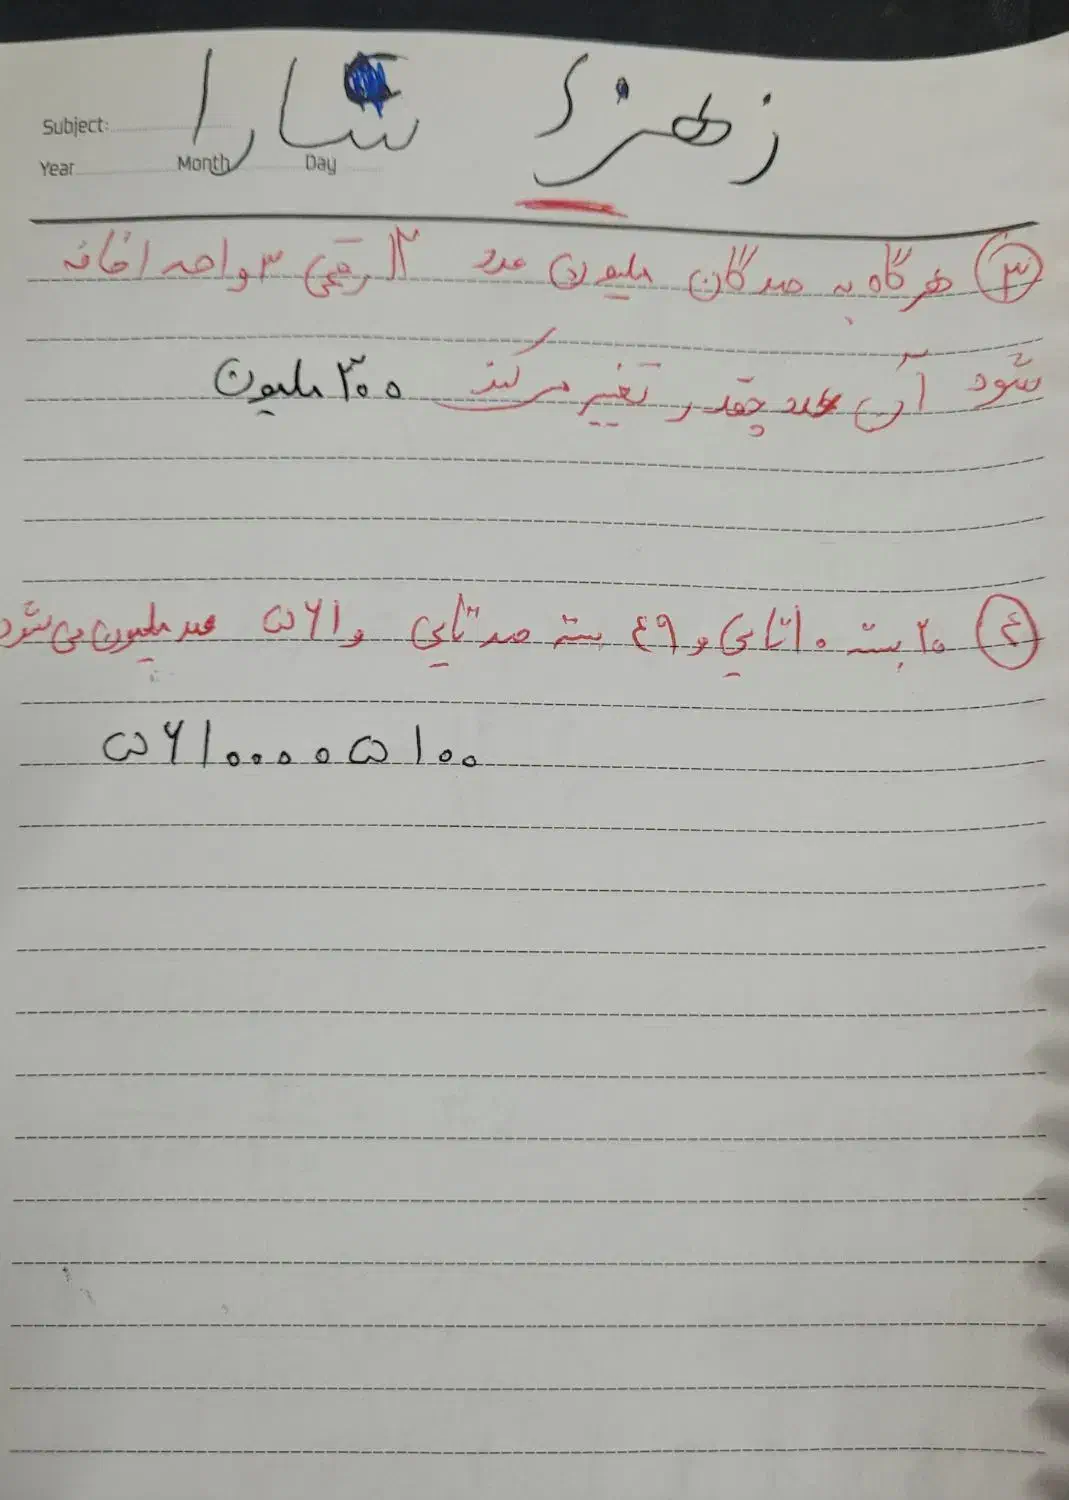 زهرا سارا
Subject:
Year Month Day
۳ هرگاه به صدگان ملیون عدد ۱۲ رقمی ۳ واحد اضافه
شود آن عدد چقدر تغییر میکند ۳۰۰ ملیون
۴ ۲۰ بسته ۱۰ تایی و ۴۹ بسته صد تایی و ۵۶۱ صد ملیون می شود
۵۶۱۰۰۰۰۵۱۰۰